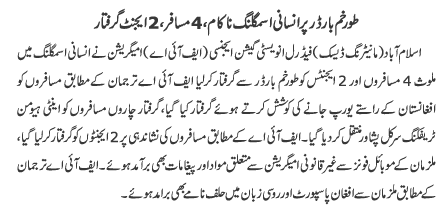 طورخم بارڈر پر انسانی اسمگلنگ ناکام، 4 مسافر، 2 ایجنٹ گرفتار
اسلام آباد (مانیٹرنگ ڈیسک) فیڈرل انویسٹی گیشن ایجنسی (ایف آئی اے) امیگریشن نے انسانی اسمگلنگ میں
ملوث 4 مسافروں اور 2 ایجنٹس کو طورخم بارڈر سے گرفتار کرلیا ایف آئی اے ترجمان کے مطابق مسافروں کو
افغانستان کے راستے یورپ جانے کی کوشش کرتے ہوئے گرفتار کیا گیا، گرفتار چاروں مسافروں کو اینٹی ہیومن
ٹریفکنگ سرکل پشاور منتقل کردیا گیا۔ ایف آئی اے کے مطابق مسافروں کی نشاندہی پر 2 ایجنٹوں کو گرفتار کرلیا گیا،
ملزمان کے موبائل فونز سے غیر قانونی امیگریشن سے متعلق مواد اور پیغامات بھی برآمد ہوئے۔ ایف آئی اے ترجمان
کے مطابق ملزمان سے افغان پاسپورٹ اور روسی زبان میں حلف نامے بھی برآمد ہوئے۔